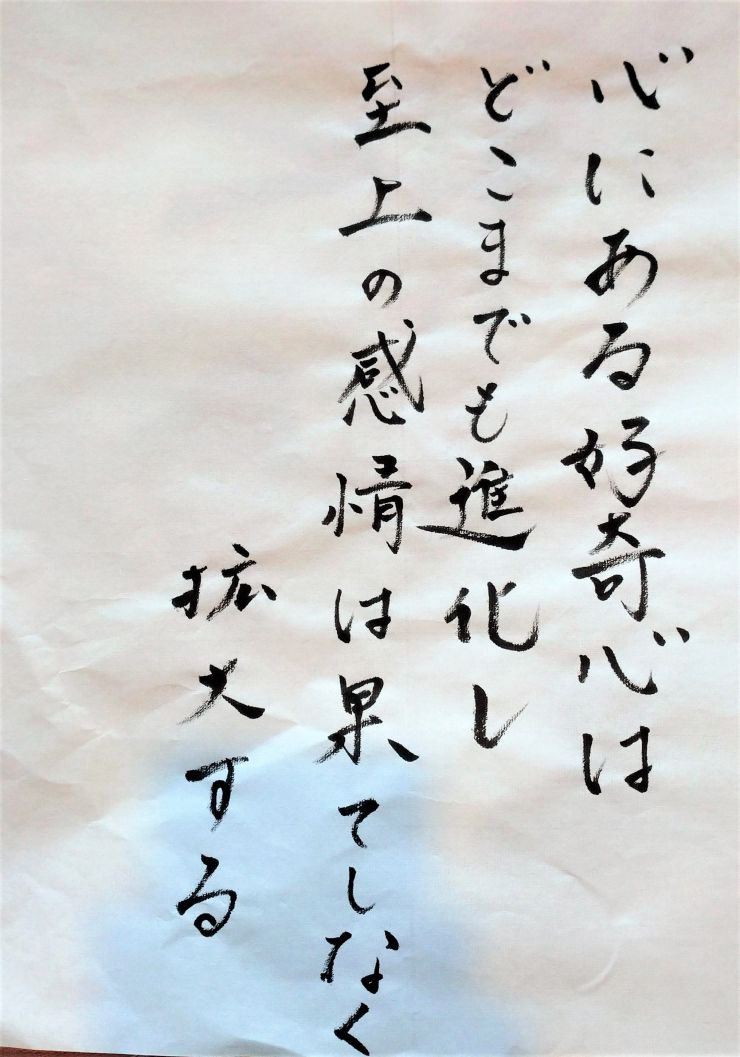 心にある好奇心は
どこまでも進化し
至上の感情は果てしなく
拡大する